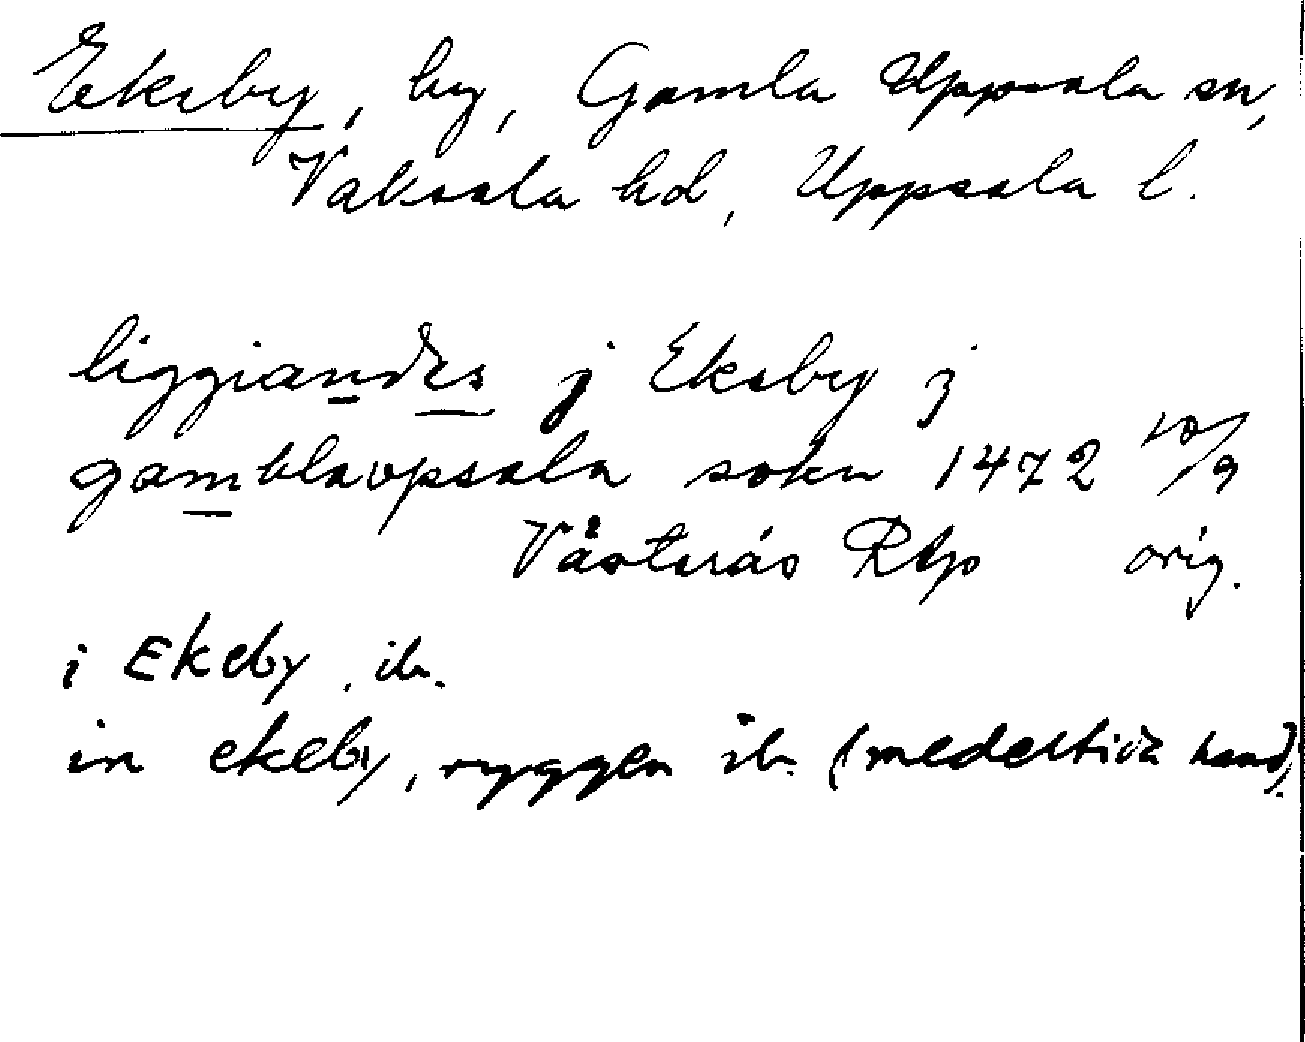 Ekeby, by, Gamla Uppsala sn,
Vaksala hd, Uppsala l.
liggiandes j Ekeby j
gamblawpsala sokn 1472 10/9
Västerås Rbp orig.
i Ekeby, ib.
in ekeby, ryggen ib. (medeltida hand).